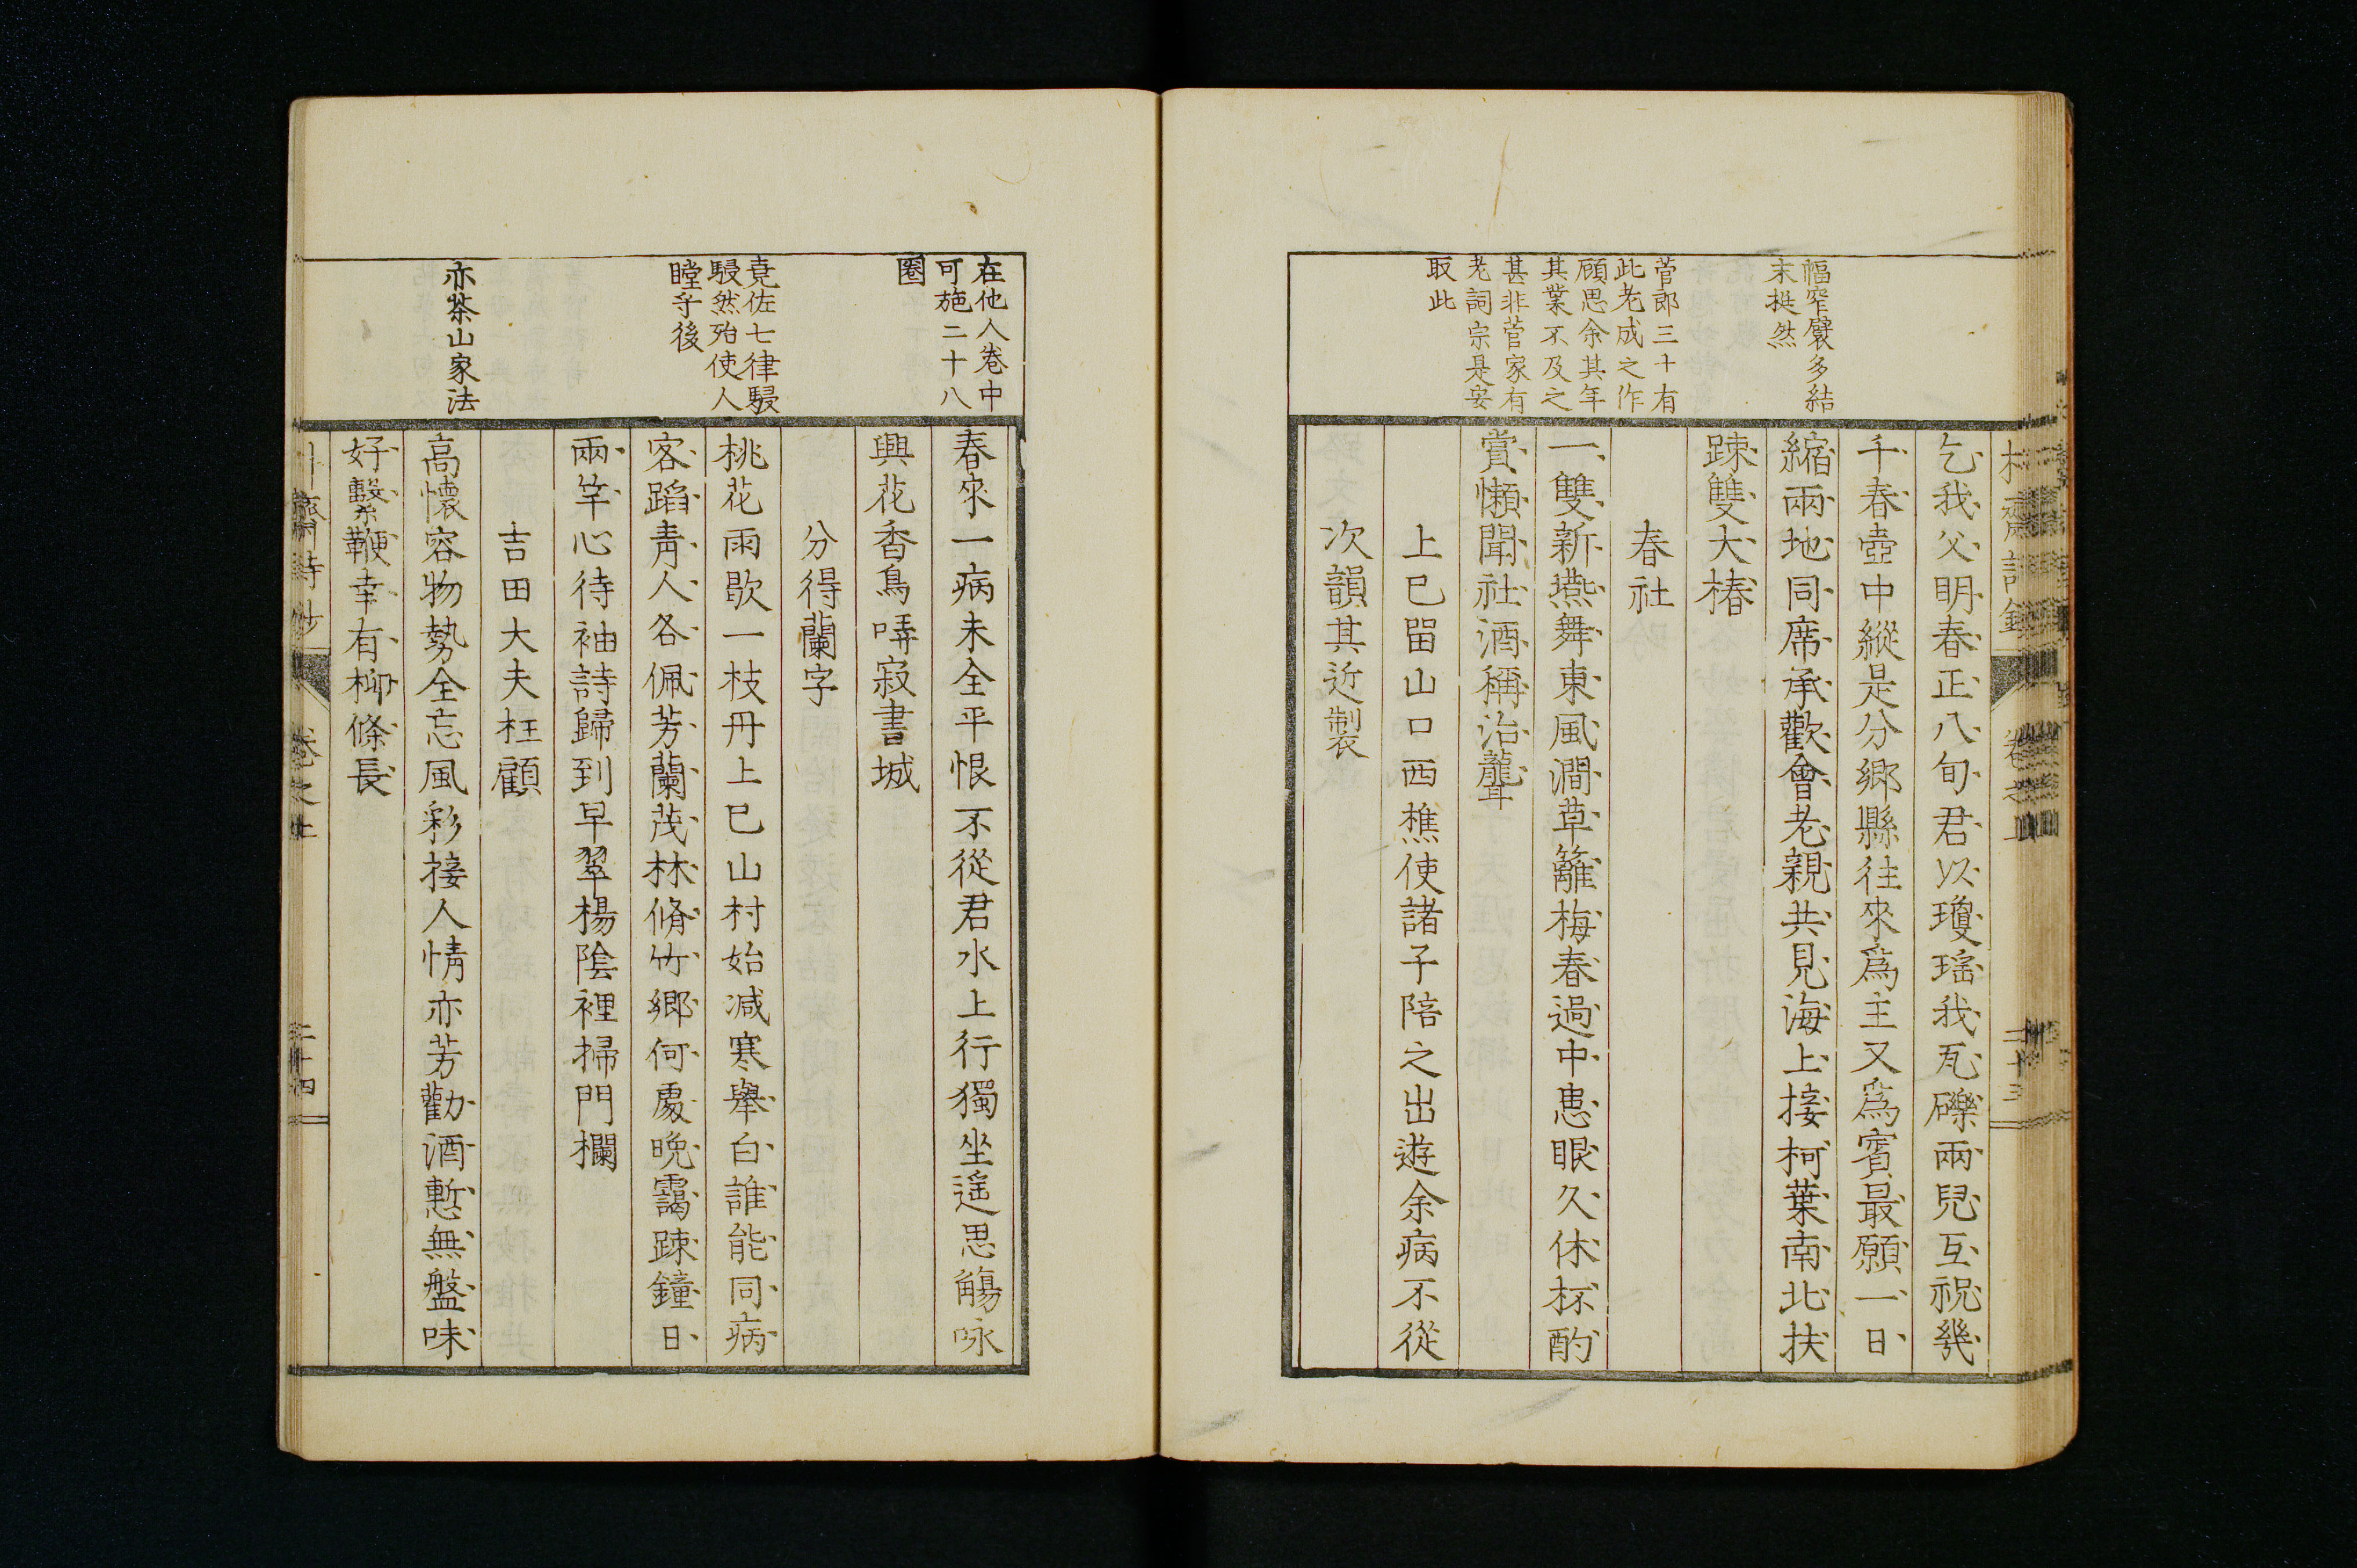 幅窄襞多結
末挺然
菅郎三十有
此老成之作
顧思余其年
其業不及之
甚非菅家有
老詞宗是安
取此
乞我父明春正八旬君以瓊瑤我瓦礫兩兒互祝幾
千春壺中縱是分鄉縣往來爲主又爲賓最願一日
縮兩地同席承歡會老親共見海上接柯葉南北扶
踈雙大椿
春社
一雙新燕舞東風澗草籬梅春過中患眼久休杯酌
賞懶聞社酒稱治聾
上巳畱山口西樵使諸子陪之出遊余病不從
次韻其近製
卷之上
二十三
在他人卷中
可施二十八
圈
堯佐七律駸
駸然殆使人
瞠乎後
亦茶山家法
春來一病未全平恨不從君水上行獨坐遙思觴咏
興花香鳥哢寂書城
分得蘭字
桃花雨歇一枝丹上巳山村始減寒舉白誰能同病
客蹈青人各佩芳蘭茂林脩竹鄉何處晚靄踈鐘日
兩竿心待袖詩歸到早翠楊陰裡掃門欄
吉田大夫枉顧
高懷容物勢全忘風彩接人情亦芳勸酒慙無盤味
好繫鞭幸有柳條長
齋詩鈔
卷之上
二十四